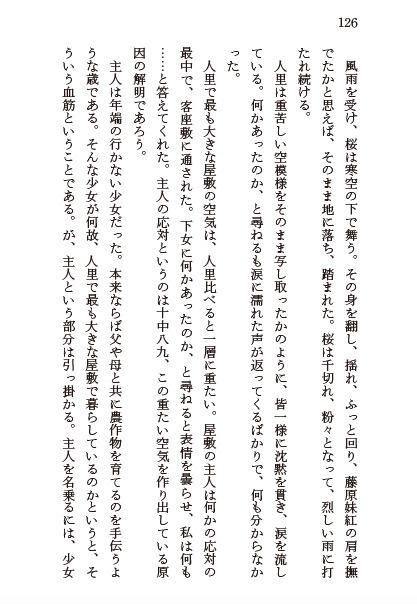 126
　風雨を受け、桜は寒空の下で舞う。その身を翻し、揺れ、ふっと回り、藤原妹紅の肩を撫
でたかと思えば、そのまま地に落ち、踏まれた。桜は千切れ、粉々となって、烈しい雨に打
たれ続ける。
　人里は重苦しい空模様をそのまま写し取ったかのように、皆一様に沈黙を貫き、涙を流し
ている。何かあったのか、と尋ねるも涙に濡れた声が返ってくるばかりで、何も分からなか
った。
　人里で最も大きな屋敷の空気は、人里比べると一層に重たい。屋敷の主人は何かの応対の
最中で、客座敷に通された。下女に何かあったのか、と尋ねると表情を曇らせ、私は何も
……と答えてくれた。主人の応対というのは十中八九、この重たい空気を作り出している原
因の解明であろう。
　主人は年端の行かない少女だった。本来ならば父や母と共に農作物を育てるのを手伝うよ
うな歳である。そんな少女が何故、人里で最も大きな屋敷で暮らしているのかというと、そ
ういう血筋ということである。が、主人という部分は引っ掛かる。主人を名乗るには、少女